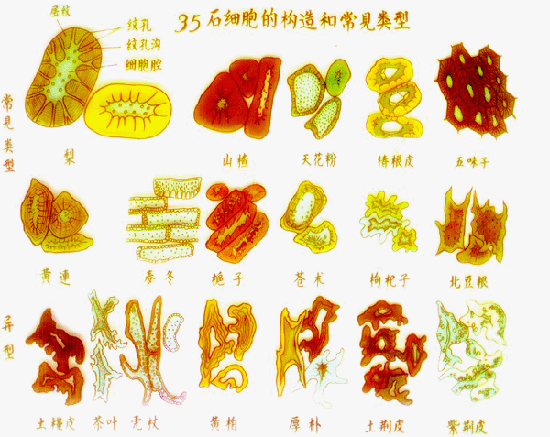 35石细胞的构造和常見类型
层纹
纹孔
纹孔沟
细胞腔
常見类型
梨
山楂
天花粉
椿根皮
五味子
黄連
麦冬
栀子
苍术
枸杞子
北豆根
异型
土槿皮
茶叶
黄柏
厚朴
土荆皮
紫荆皮